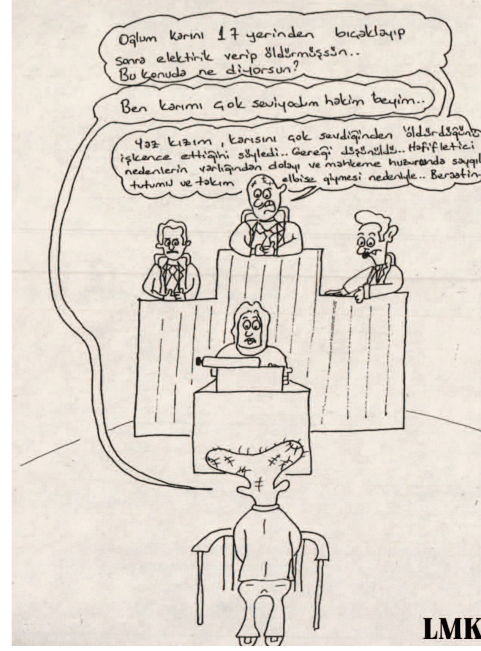 Oğlum karını 17 yerinden bıçaklayıp
sonra elektirik verip öldürmüşsün..
Bu konuda ne diyorsun?
Ben karımı çok seviyodum hakim beyim..
Yaz kızım, karısını çok sevdiğinden öldürdüğünü
işkence ettiğini söyledi.. Gereği düşünüldü.. Hafifletici
nedenlerin varlığından dolayı ve mahkeme huzurunda saygılı
tutumu ve takım elbise giymesi nedeniyle.. Beraatin
LMK